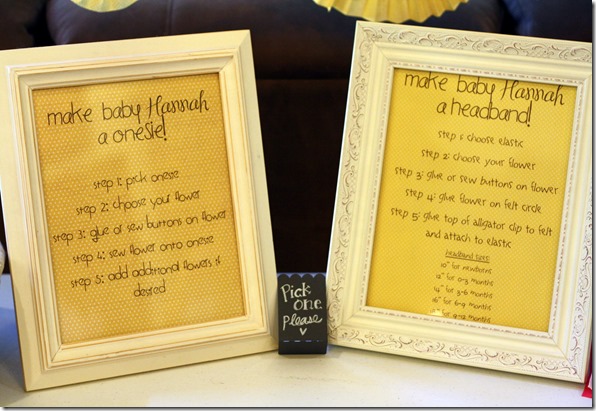 make baby Hannah
a onesie!
step 1: pick onesie
step 2: choose your flower
step 3: glue or sew buttons on flower
step 4: sew flower onto onesie
step 5: add additional flowers if
desired
Pick
one
please
make baby Hannah
a headband!
step 1: choose elastic
step 2: choose your flower
step 3: glue or sew buttons on flower
step 4: glue flower on felt circle
step 5: glue top of alligator clip to felt
and attach to elastic
headband sizes
10" for newborns
12" for 0-3 months
14" for 3-6 months
16" for 6-9 months
for 9-12 months